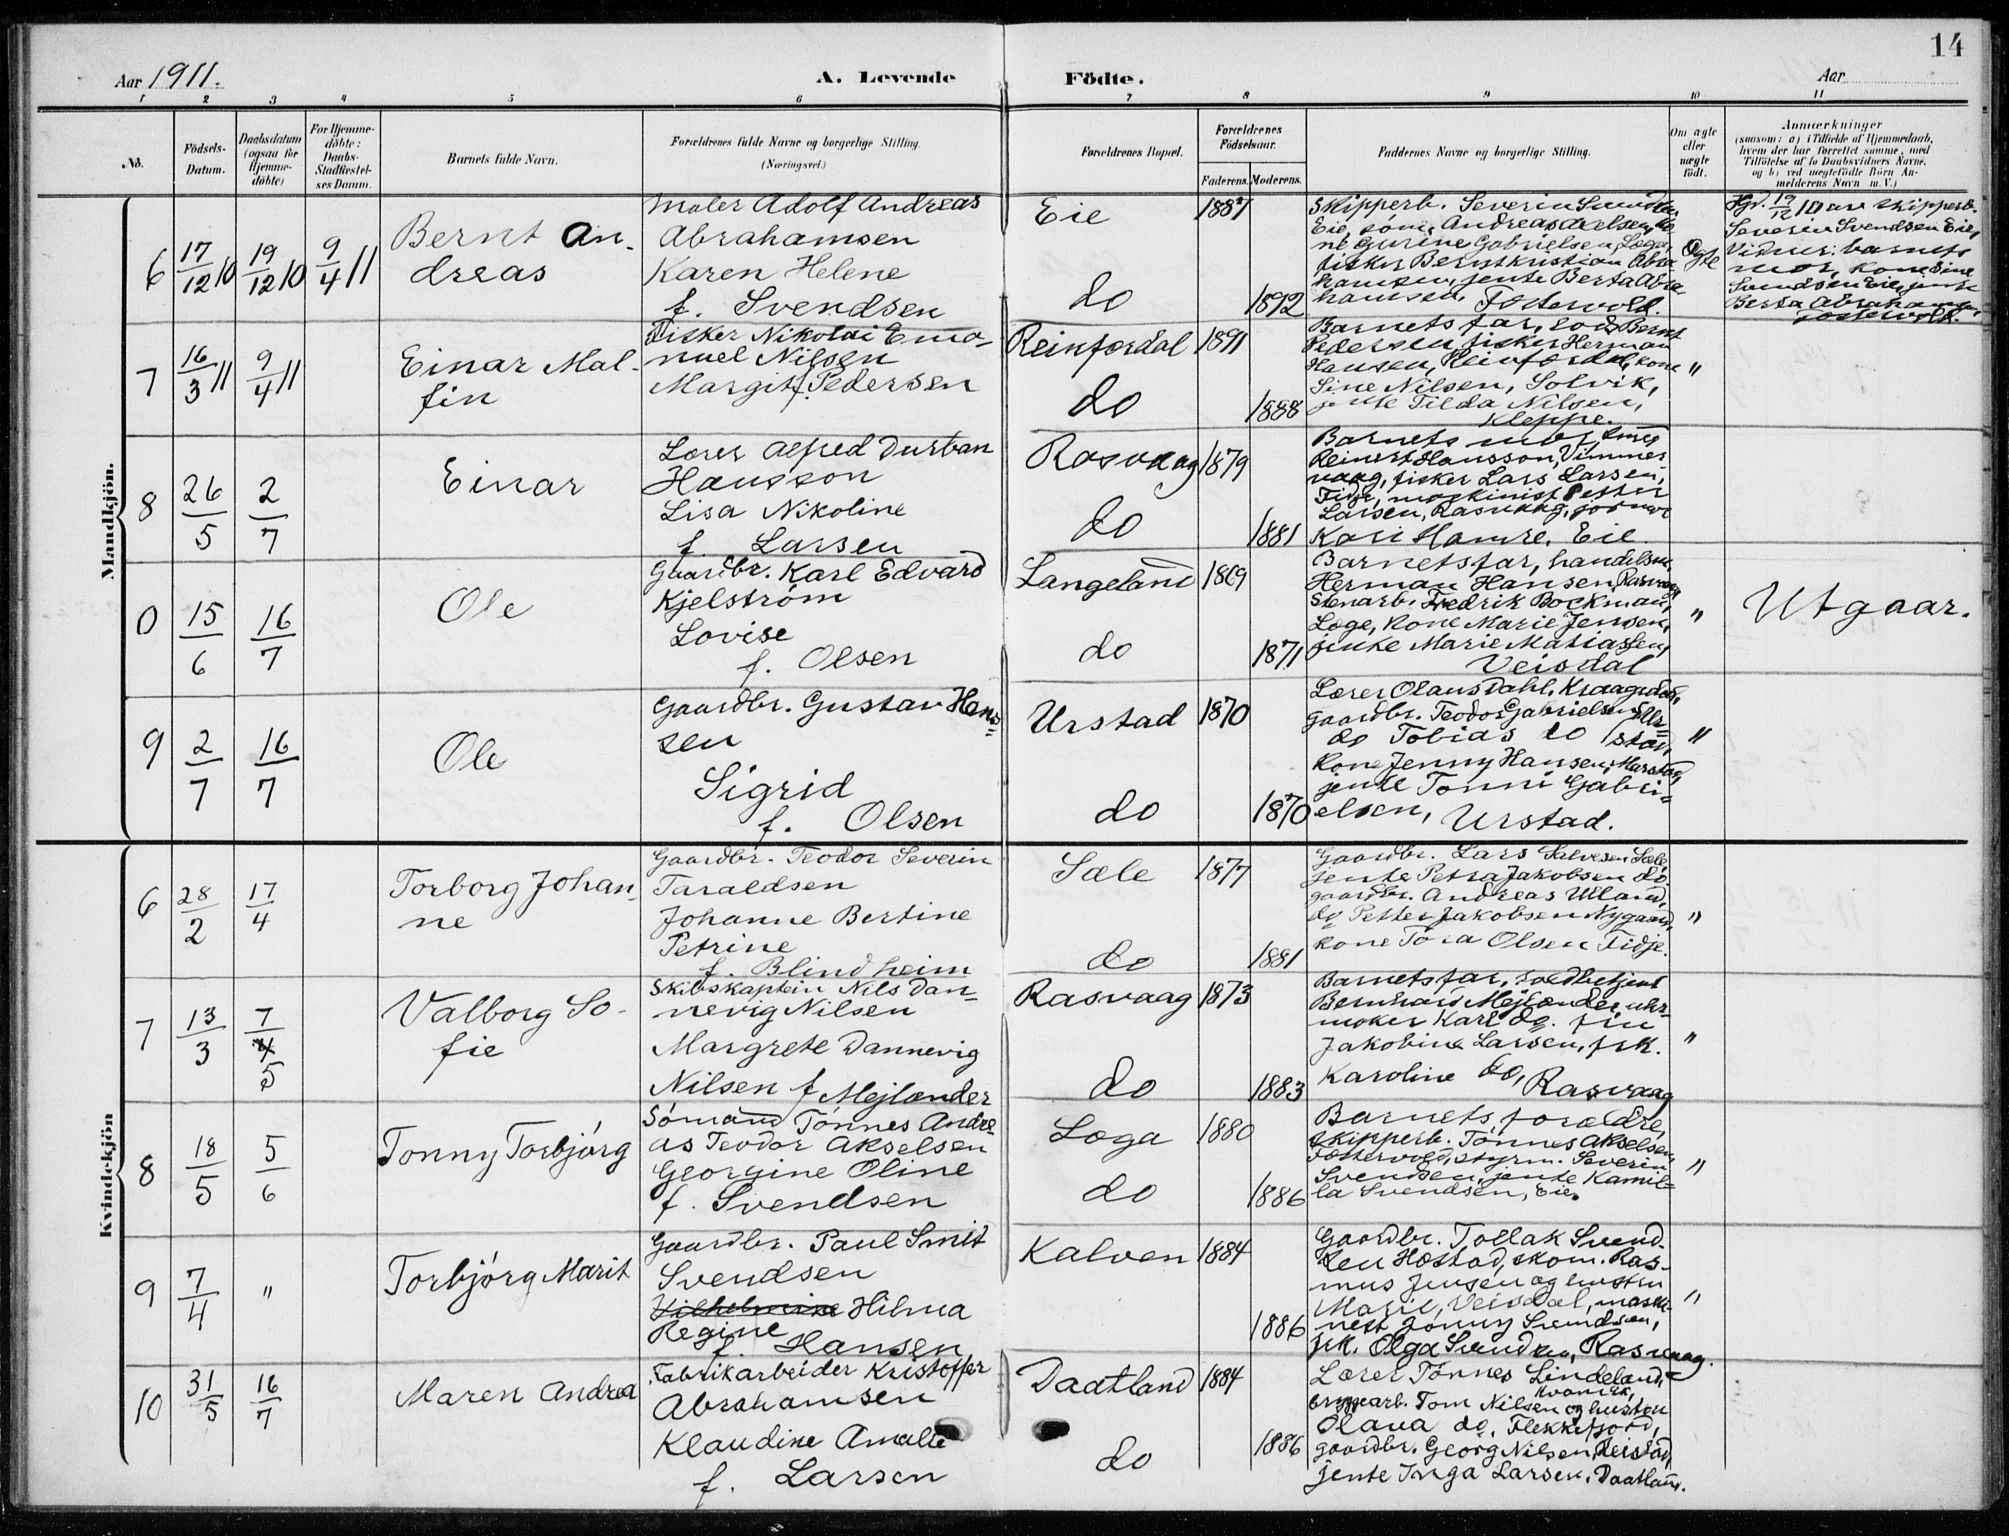 14
Aar 1911.
A. Levende Födte.
Aar
1 2 3 4 5 6 7 8 9 10 11
No.
Födsels-
Datum.
Daabsdatum
(ogsaa for
Hjemme-
döbte)
For Hjemme-
döbte:
Daabs-
Stadfæstel-
ses Datum.
Barnets fulde Navn.
Forældrenes fulde Navne og borgerlige Stilling.
(Næringsvei.)
Forældrenes Bopæl.
Forældrenes
Födselsaar.
Faderens. Moderens.
Faddernes Navne og borgerlige Stilling.
Om ægte
eller
uægte
födt.
Anmærkninger
(saasom: a) i Tilfælde af Hjemmedaab,
hvem der har forrettet samme, med
Tilföielse af to Daabsvidners Navne,
og b) ved uegtefödte Börn An-
melderens Navn m.V.)
Mandkjön.
6
17/12 10
19/12 10
9/4 11
Bernt An-
dreas
Maler Adolf Andreas
Abrahamsen
Karen Helene
f. Svendsen
Eie
do
1887
1892
Skipperb. Severin Svendsen
Eie, søm. Andreas Axelsen, ko-
ne Gurine Gabrielsen, Løga,
fisker Berntkristian Abra-
hamsen, jente Berta Abra-
hamsen Fostervold.
Ægte
Hjd. 19/12 10 av skipperb.
Severin Svendsen Eie,
Vidner: barnets
mor, kone Sine
Svendsen Eie, jente
Berta Abrahamsen,
Fostervold.
7
16/3 11
9/4 11
Einar Mal-
fin
Fisker Nikolai Ema-
nuel Nilsen
Margit f. Pedersen
Reinfordal
do
1891
1888
Barnets far, lods Bernt
Pedersen fisker Herman
Hansen, Reinfordal, kone
Sine Nilsen, Solvik,
jente Tilda Nilsen,
Kleppe.
"
8
26/5
2/7
Einar
Lærer Alfred Durban
Hansson
Lisa Nikoline
f. Larsen
Rasvaag
do
1879
1881
Barnets mor, smed
Reinert Hansson, Vimmer
vaag, fisker Lars Larsen,
Fidje, maskinist Petter
Larsen, Rasvaag, jormor
Kari Hamre, Eie.
0
15/6
16/7
Ole
Gaardbr. Karl Edvard
Kjelström
Lovise
f. Olsen
Langeland
do
1869
1871
Barnets far, handelsm.
Herman Hansen, Rasvaag
Stenarb. Fredrik Bockman,
Løge, kone Marie Jensen,
jente Marie Matiassen,
Veisdal
"
Utgaar.
9
2/7
16/7
Ole
Gaardbr. Gustav Han-
sen
Sigrid
f. Olsen
Urstad
do
1870
1870
Lærer Olaus Dahl, Kraagedal,
gaardbr. Teodor Gabrielsen Ur-
do Tobias do stad,
kone Jenny Hansen,
jente Tonni Gabri-
elsen, Urstad.
"
Kvindekjön
6
28/2
17/4
Torborg Johan-
ne
Gaardbr. Teodor Severin
Taraldsen
Johanne Bertine
Petrine
f. Blindheim
Sæle
do
1877
1881
Gaardbr. Lars Salvesen Sæle
jente Petra Jakobsen do
gaardbr. Andreas Uland,
do Petter Jakobsen Nygaard,
kone Tora Olsen Fidje.
"
7
13/3
7/4 5
Valborg So-
fie
Skibskaptein Nils Dan-
nevig Nilsen
Margrete Dannevig
Nilsen f. Mejlænder
Rasvaag
do
1873
1883
Barnets far, toldbetjent
Bernhard Mejlænder, uhr-
maker Karl do. fru
Jakobine Larsen, frk.
Karoline do, Rasvaag
"
8
18/5
5/6
Tonny Torbjørg
Sømand Tønnes Andre-
as Teodor Akselsen
Georgine Oline
f. Svendsen
Løga
do
1880
1886
Barnets forældre,
skipperb. Tønnes Akselsen,
Fostervold, styrm. Severin
Svendsen, jente Kamil-
la Svendsen, Eie.
"
9
7/4
"
Torbjørg Marit
Gaardbr. Paul Smit
Svendsen
Vilhelmine Hilma
Regine
f. Hansen
Kalven
1884
1886
Gaardbr. Tollak Svend-
sen Høstad, skom. Ras-
mus Jensen og hustru
Marie, Veisdal, maski-
nist Jonny Svendsen,
frk. Olga Svendsen, Rasvaag.
"
10
31/5
16/7
Maren Andrea
Fabrikarbeider Kristoffer
Abrahamsen
Klaudine Amalie
f. Larsen
Daatland
do
1884
1886
Lærer Tønnes Lindeland,
Kvanvik,
bryggearb. Tom Nilsen og hustru
Olava do, Flekkefjord,
gaardbr. Georg Nilsen, Reistad,
jente Inga Larsen, Daatland.